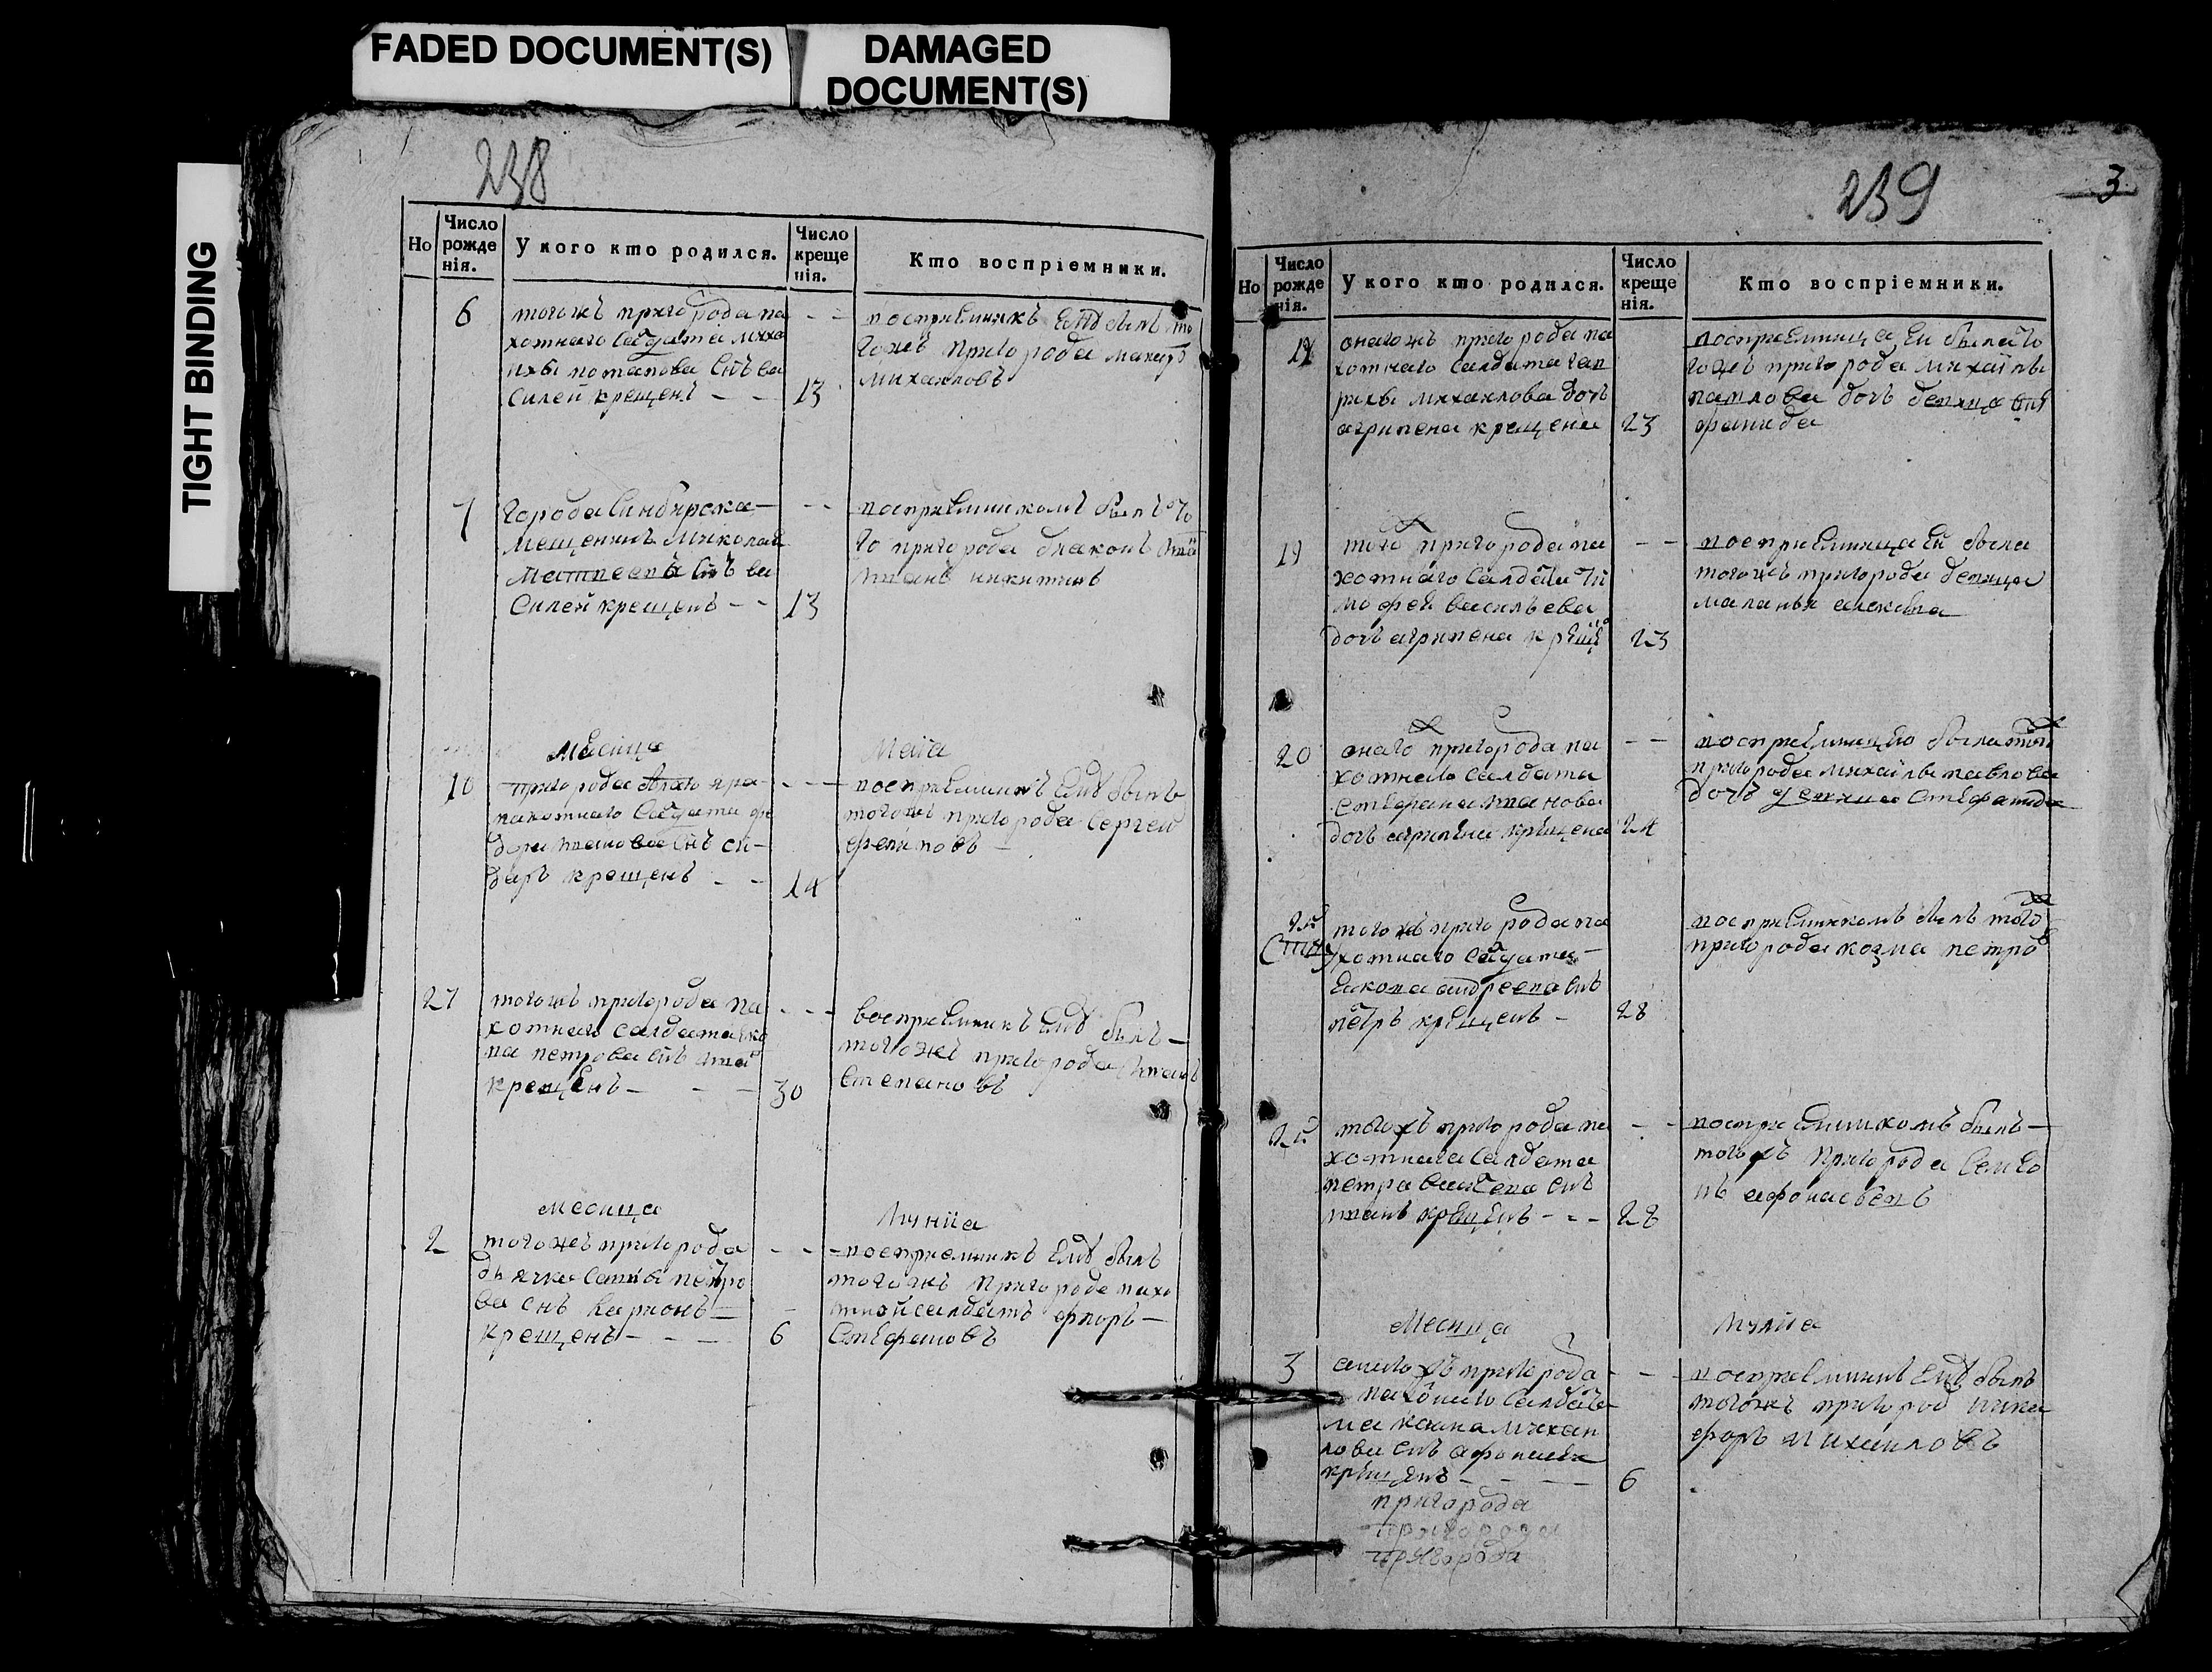 FADED DOCUMENT(S)
DAMAGED
DOCUMENT(S)
TIGHT BINDING
238
Но
Число
рожде
нія.
У кого кто родился.
Число
креще
нія.
Кто воспріемники.
6
тогожъ пригорода па
хотнаго салдата миха
илы потапова снъ ва
силей крещенъ
13
восприемникъ ему былъ то
гожъ пригорода макаръ
михаиловъ
7
города синбирска
мещенинъ николай
матвеевъ снъ ва
силей крещенъ
13
восприемникомъ былъ то
го пригорода дьаконъ
никитинъ
месица
маиа
10
пригорода
пахотнаго салдата фе
дора снъ си
доръ крещенъ
14
восприемникъ ему былъ
тогожъ пригорода сергей
филиповъ
27
тогожъ пригорода па
хотнаго салдата яко
ва петрова снъ
крещенъ
30
восприемникъ ему былъ
тогожъ пригорода иванъ
степановъ
месица
иуниа
2
тогожъ пригорода
дьячка савы петро
ва снъ карионъ
крещенъ
6
восприемникъ ему былъ
тогожъ пригорода пахо
тной салдатъ фроръ
стефановъ
239
3
Но
Число
рожде
нія.
У кого кто родился.
Число
креще
нія.
Кто воспріемники.
онагожъ пригорода па
хотнаго салдата гав
рилы михаилова дочь
агрипена крещена
23
восприемница ей была то
гожъ пригорода михаилы
павлова дочь девица сте
фанида
19
того пригорода па
хотнаго салдата ти
мофея васильева
дочь агрипена креще
23
восприемница ей была
тогожъ пригорода девица
маланья
20
онаго пригорода па
хотнаго салдата
стефана иванова
дочь агрипена крещена
24
восприемницею была той
пригорода михаилы павлова
дочь девица стефанида
тогожъ пригорода па
хотнаго салдата
якова андреева снъ
петръ крещенъ
28
восприемникомъ былъ того
пригорода козма петро
тогожъ пригорода па
хотнага салдата
петра снъ
иванъ крещенъ
28
восприемникомъ былъ
тогожъ пригорода семио
нъ афонасьевъ
месица
иулиа
3
пригорода
пахотнаго салдата
михаи
лова снъ афонасей
крещенъ
6
восприемникъ ему былъ
тогожъ пригород ники
форъ михаиловъ
пригорода
пригорода
пригорода